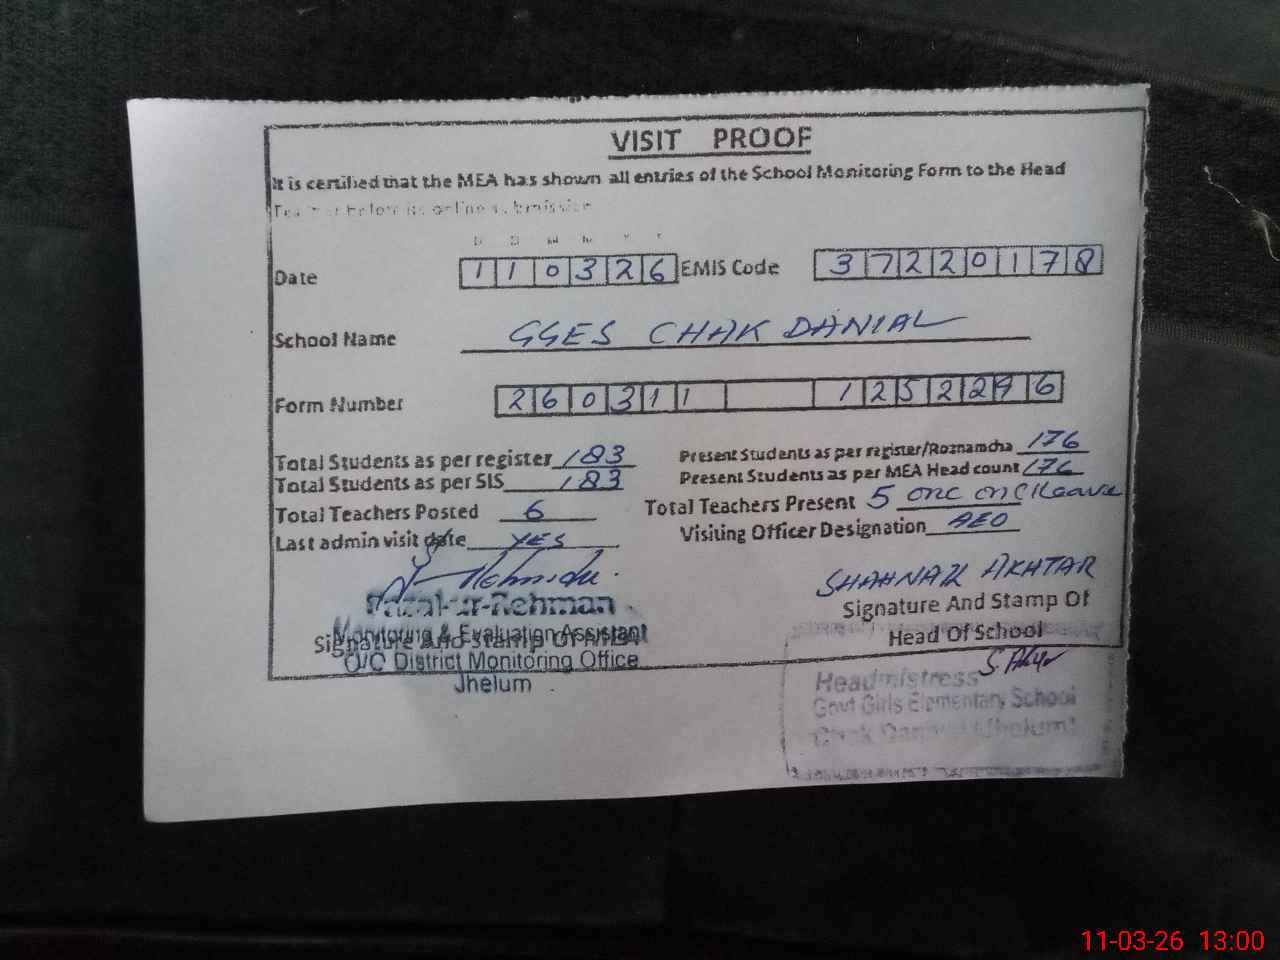 VISIT PROOF
It is certified that the MEA has shown all entries of the School Monitoring Form to the Head
Teacher before its online submission
D D M M Y Y
Date 110326 EMIS Code 37220178
School Name GGES CHAK DANIAL
Form Number 260311 1252296
Total Students as per register 183 Present Students as per register/Roznamcha 176
Total Students as per SIS 183 Present Students as per MEA Head count 176
Total Teachers Posted 6 Total Teachers Present 5 one on C/leave
Last admin visit date YES Visiting Officer Designation AEO
Fazal-ur-Rehman
Monitoring & Evaluation Assistant
Signature And Stamp Of MEA
O/O District Monitoring Office
Jhelum
SHAHNAZ AKHTAR
Signature And Stamp Of
Head Of School
Headmistress
Govt Girls Elementary School
Chak Danial (Jhelum)
11-03-26 13:00